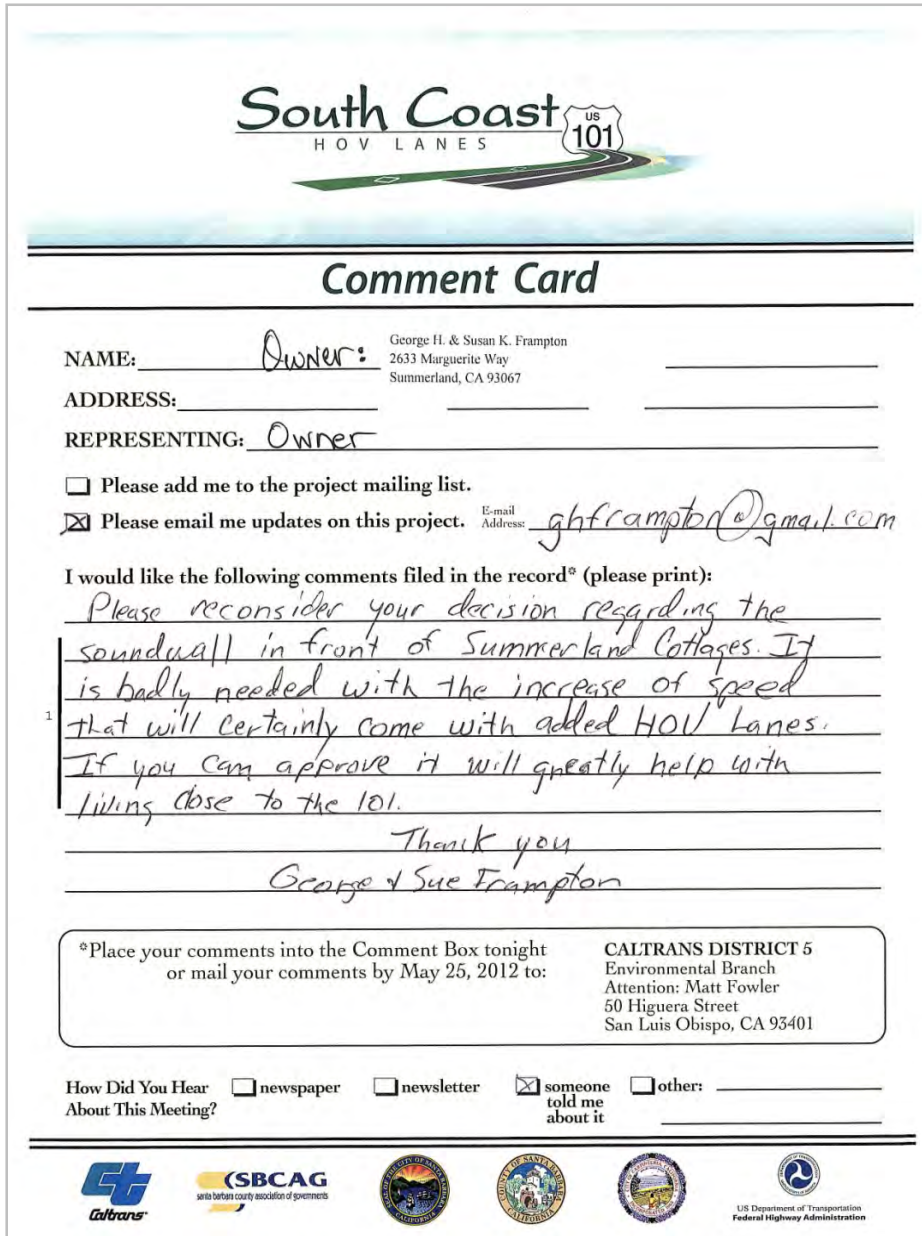 South Coast
HOV LANES
US
101
Comment Card
NAME: Owner: George H. & Susan K. Frampton
2633 Marguerite Way
Summerland, CA 93067
ADDRESS:
REPRESENTING: Owner
Please add me to the project mailing list.
Please email me updates on this project. E-mail Address: ghframpton@gmail.com
I would like the following comments filed in the record* (please print):
Please reconsider your decision regarding the
soundwall in front of Summerland Cottages. It
is badly needed with the increase of speed
1
that will certainly come with added HOV Lanes.
If you can approve it will greatly help with
living close to the 101.
Thank you
George & Sue Frampton
*Place your comments into the Comment Box tonight
or mail your comments by May 25, 2012 to:
CALTRANS DISTRICT 5
Environmental Branch
Attention: Matt Fowler
50 Higuera Street
San Luis Obispo, CA 93401
How Did You Hear
About This Meeting?
newspaper
newsletter
someone
told me
about it
other:
Caltrans
SBCAG
santa barbara county association of governments
US Department of Transportation
Federal Highway Administration